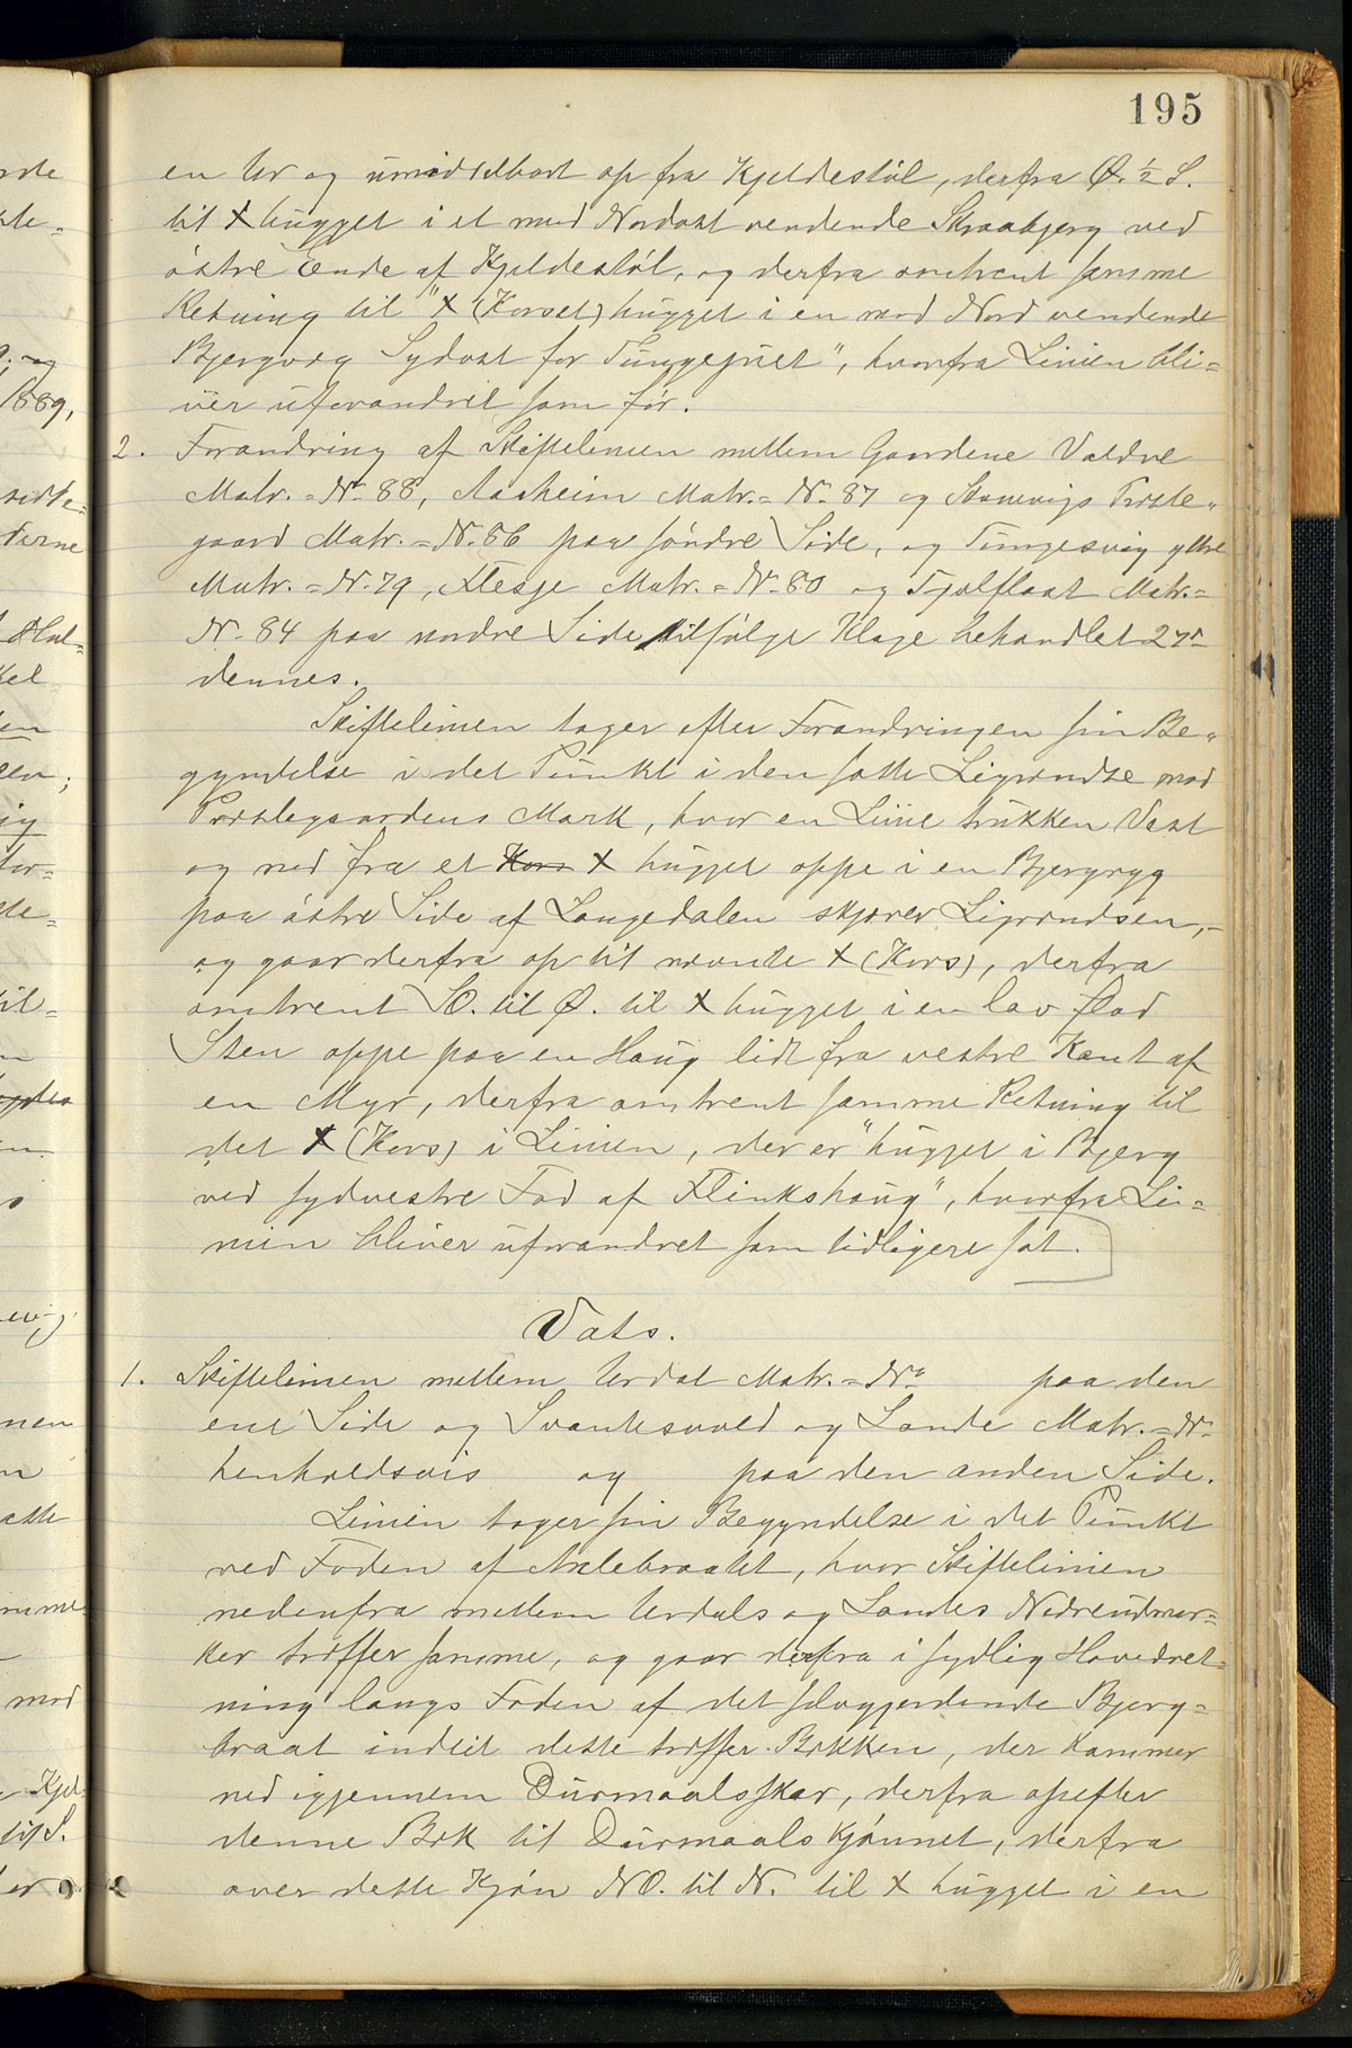 195
en Ur og umiddelbart op fra Kjeldestøl, derfra Ø. ½ S.
til X hugget i et mod Nordost vendende Skraabjerg ved
østre Ende af Kjeldestøl, og derfra omtrent samme
Retning til "X (Korset) hugget i en mod Nord vendende
Bjergvæg Sydost for Tungegjuet", hvorfra Linien bli=
ver uforandret som før.
2. Forandring af Skiftelinien mellem Gaardene Valdre
Matr.=Nr. 88, Aaheim Matr.=Nr. 87 og Præste=
gaard Matr.=Nr. 86 paa søndre Side, og Tungesvig ytre
Matr.=Nr. 79, Flesje Matr.=Nr. 80 og Tjelflaat Matr.=
Nr. 84 paa nordre Side tilfølge Klage behandlet 27de
dennes.
Skiftelinien tager efter Forandringen sin Be=
gyndelse i det Punkt i den satte Ligrændse mod
Præstegaardens Mark, hvor en Linie trukken Vest
og ned fra et Kors X hugget oppe i en Bjergryg
paa østre Side af Langedalen skjærer Ligrændsen,-
og gaar derfra op til nævnte X (Kors), derfra
omtrent SO. til Ø. til X hugget i en lav flad
Sten oppe paa en Haug lidt fra vestre Kant af
en Myr, derfra omtrent samme Retning til
det X (Kors) i Linien, der er "hugget i Bjerg
ved sydvestre Fod af Flinkshaug", hvorfra Li=
nien bliver uforandret som tidligere sat.
Vats.
1. Skiftelinien mellem Urdal Matr.=Nr. paa den
ene Side og Svantesvold og Lande Matr.=Nr.
henholdsvis og paa den anden Side.
Linien tager sin Begyndelse i det Punkt
ved Foden af Axlebraatet, hvor Skiftelinien
nedenfra mellem Urdals og Landes Nedreudmar=
ker træffer samme, og gaar derfra i sydlig Hovedret=
ning langs Foden af det selvgjerdende Bjerg=
braat indtil dette træffer Bækken, der kommer
ned igjennem Durmaalsskar, derfra opefter
denne Bæk til Durmaalskjønnet, derfra
over dette Kjøn NO. til N. til X hugget i en